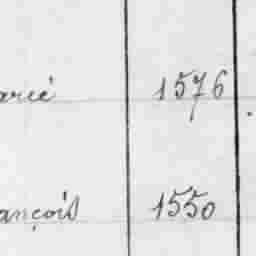 arié 1576
ançois 1550